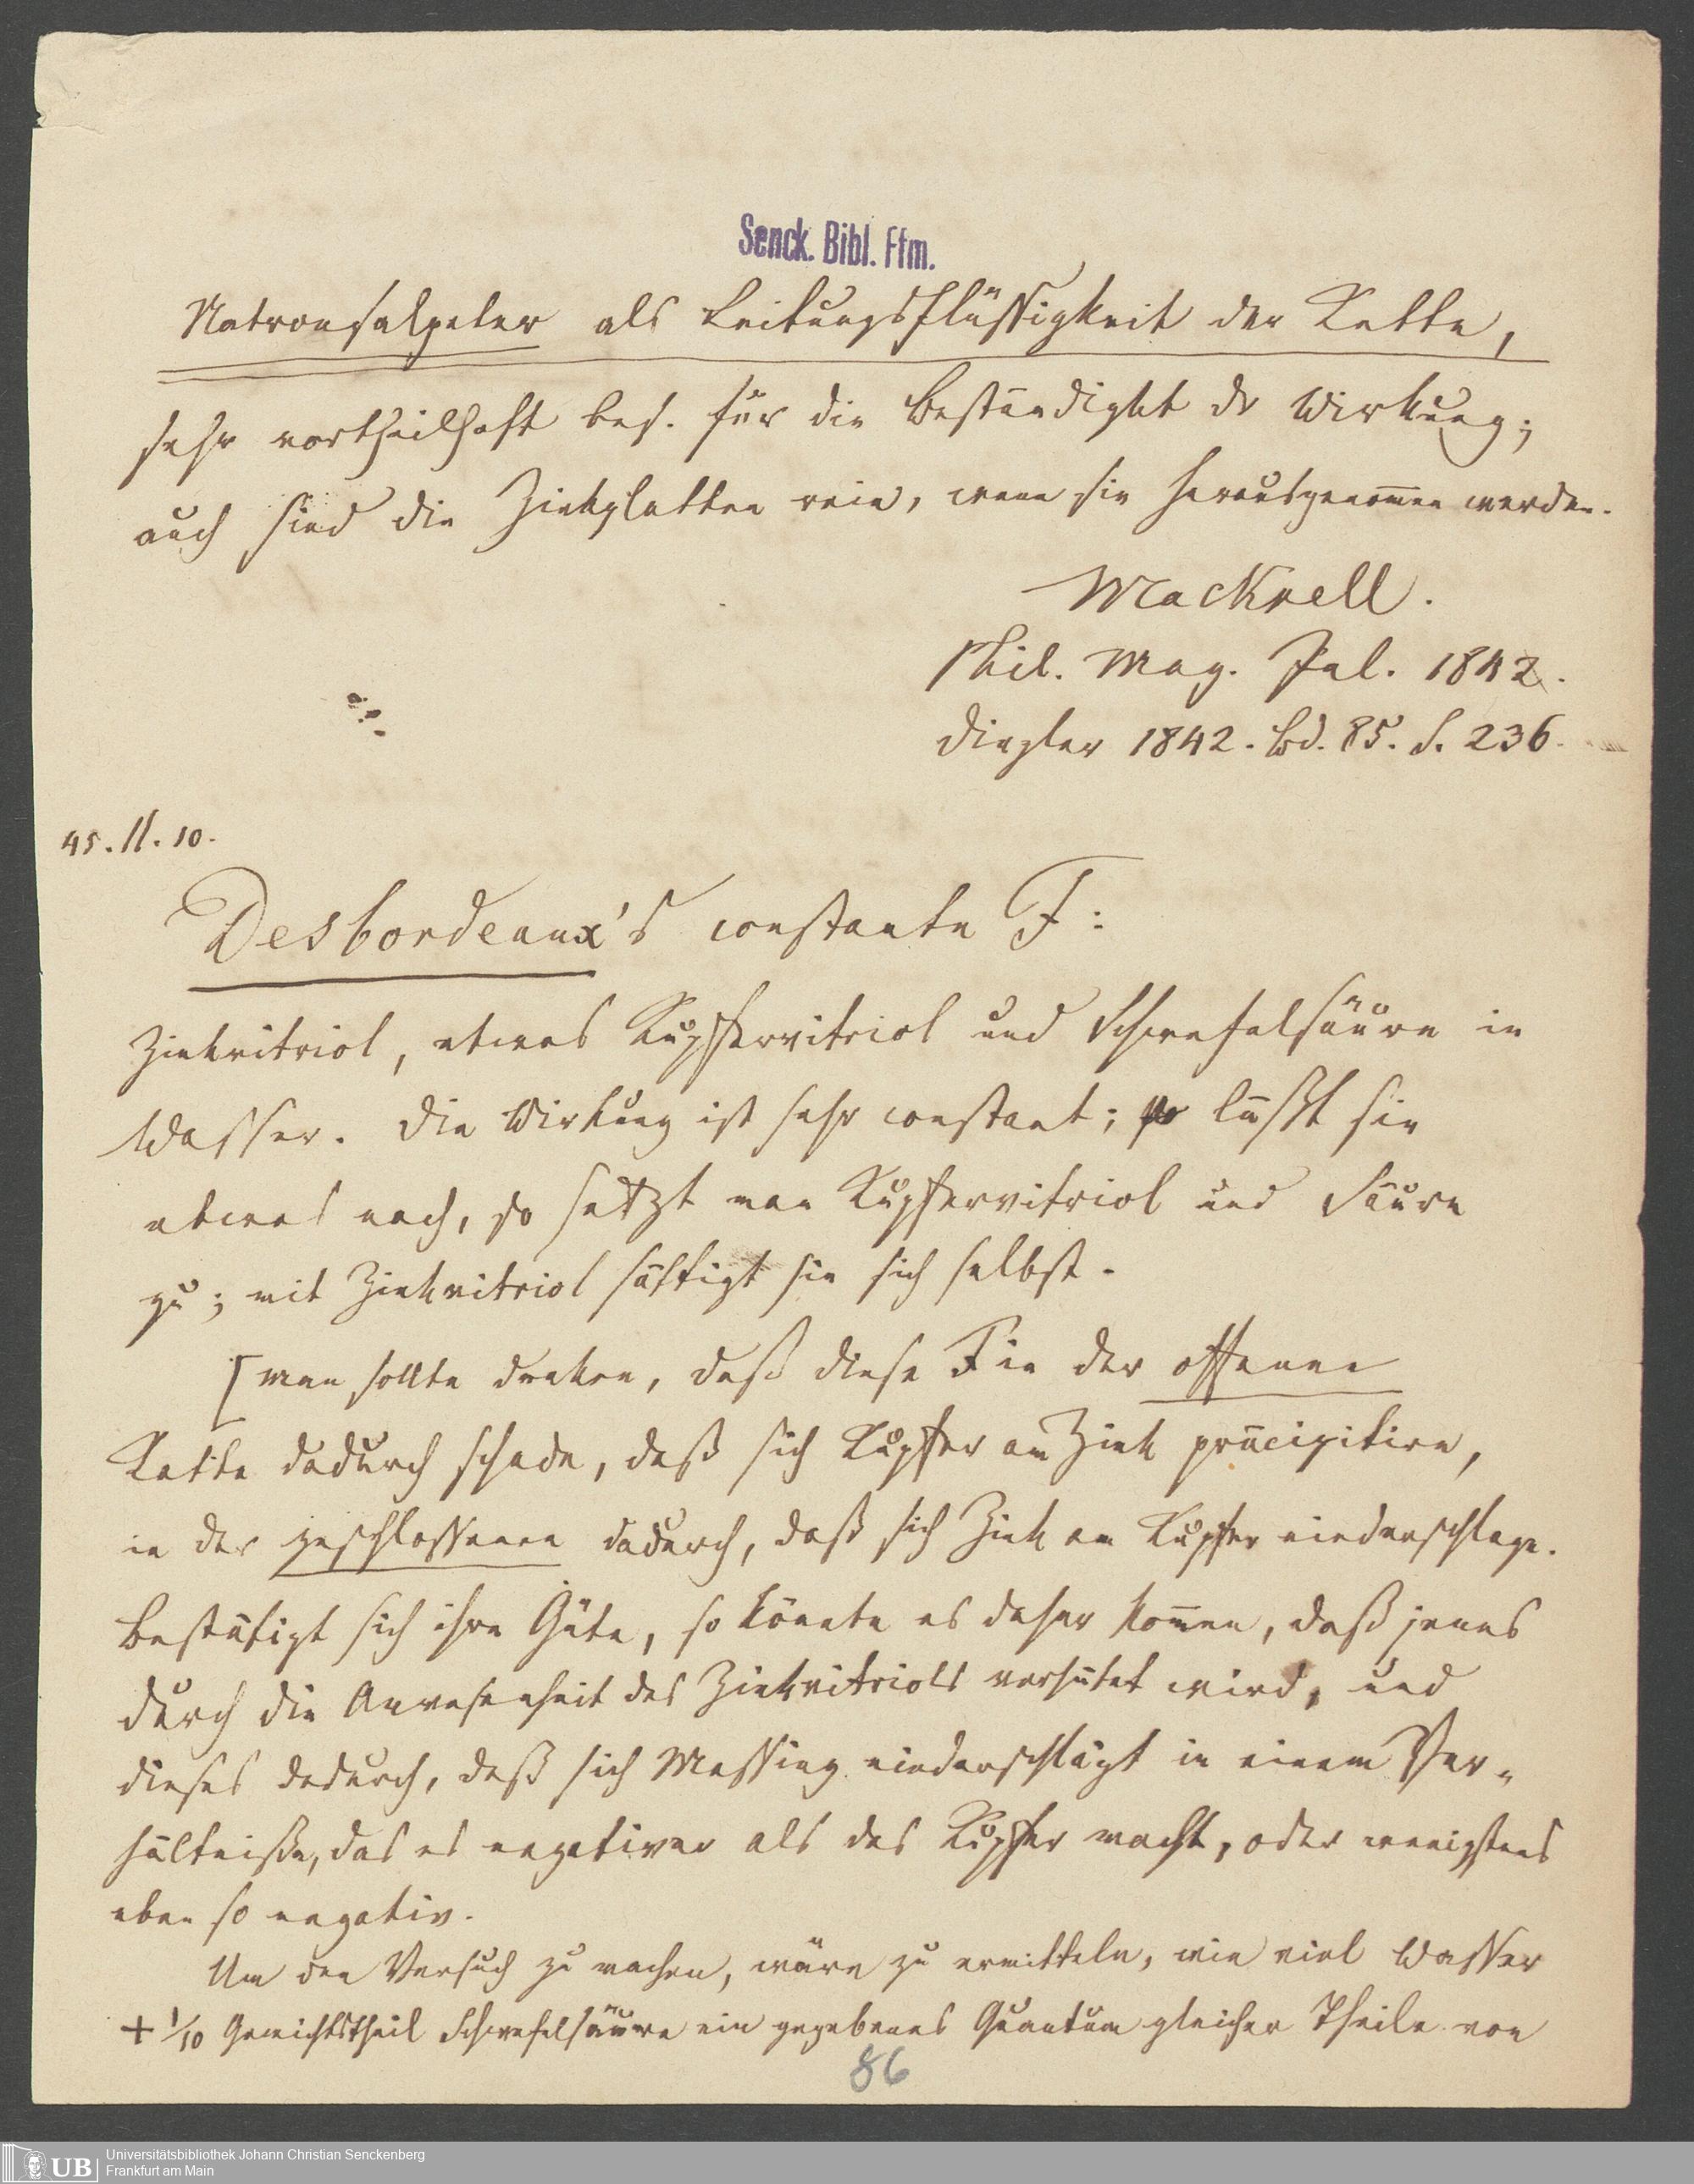 Senck. Bibl. Ffm.
Natronsalpeter als Leitungsflüssigkeit der Kette,
sehr vortheilhaft bes. für die Beständigkt dr Wirkung;
auch sind die Zinkplatten rein, wenn sie herausgenom̅en werden.
MacKrell.
Phil. Mag. Jul. 1842.
Dingler 1842. Bd. 85. S. 236.
45. 11. 10.
Desbordeaux's constante F:
Zinkvitriol, etwas Kupfervitriol und Schwefelsäure in
Wasser. Die Wirkung ist sehr constant; läßt sie
etwas nach, so setzt man Kupfervitriol und Säure
zu; mit Zinkvitriol sättigt sie sich selbst.
[Man sollte denken, daß diese F in der offenen
Kette dadurch schade, daß sich Kupfer am Zink präcipitire,
in der geschlossenen dadurch, daß sich Zink am Kupfer niederschlage.
Bestätigt sich ihre Güte, so könnte es daher kom̅en, daß jenes
durch die Anwesenheit des Zinkvitriols verhütet wird, und
dieses dadurch, daß sich Messing niederschlägt in einem Ver-
hältniße, das es negativer als das Kupfer macht, oder wenigstens
eben so negativ.
Um den Versuch zu machen, wäre zu ermitteln, wie viel Wasser
+ 1/10 Gewichtstheil Schwefelsäure ein gegebenes Quantum gleicher Theile von
86
UB
Universitätsbibliothek Johann Christian Senckenberg
Frankfurt am Main